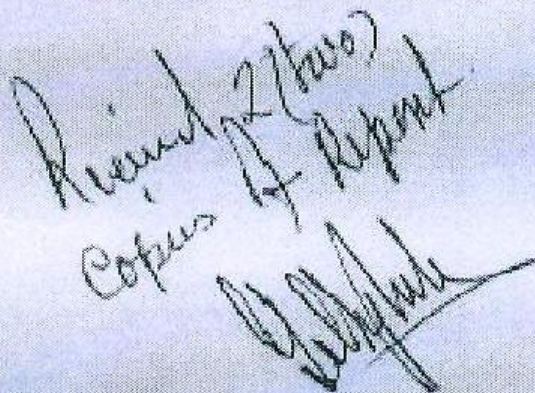 Received 2 (two)
Copies of Report